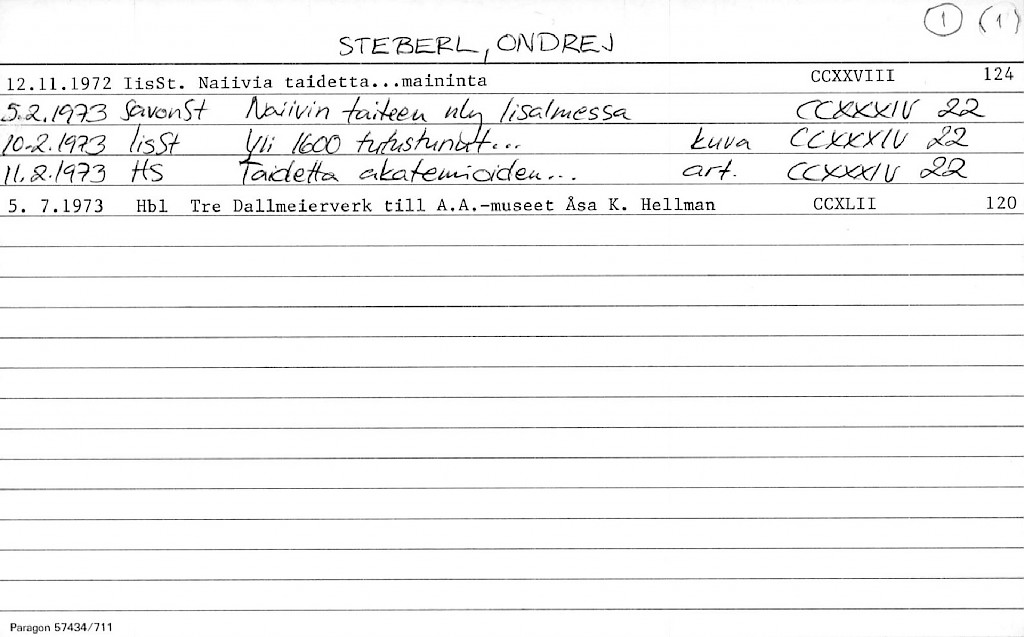 1 (1)
STEBERL, ONDREJ
12.11.1972 IisSt. Naiivia taidetta...maininta CCXXVIII 124
5.2.1973 SavonSt Naiivin taiteen nly Iisalmessa CCXXXIV 22
10.2.1973 IisSt Yli 1600 tutustunut... kuva CCXXXIV 22
11.2.1973 HS Taidetta akatemioiden... art. CCXXXIV 22
5. 7.1973 Hbl Tre Dallmeierverk till A.A.-museet Åsa K. Hellman CCXLII 120
Paragon 57434/711